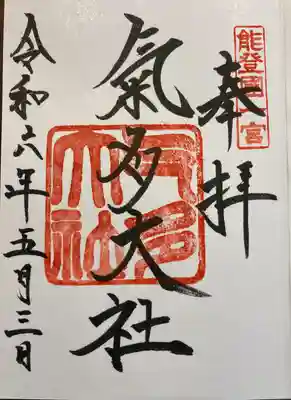 能登國一宮
奉拝
氣多大社
氣多大社
令和六年五月三日